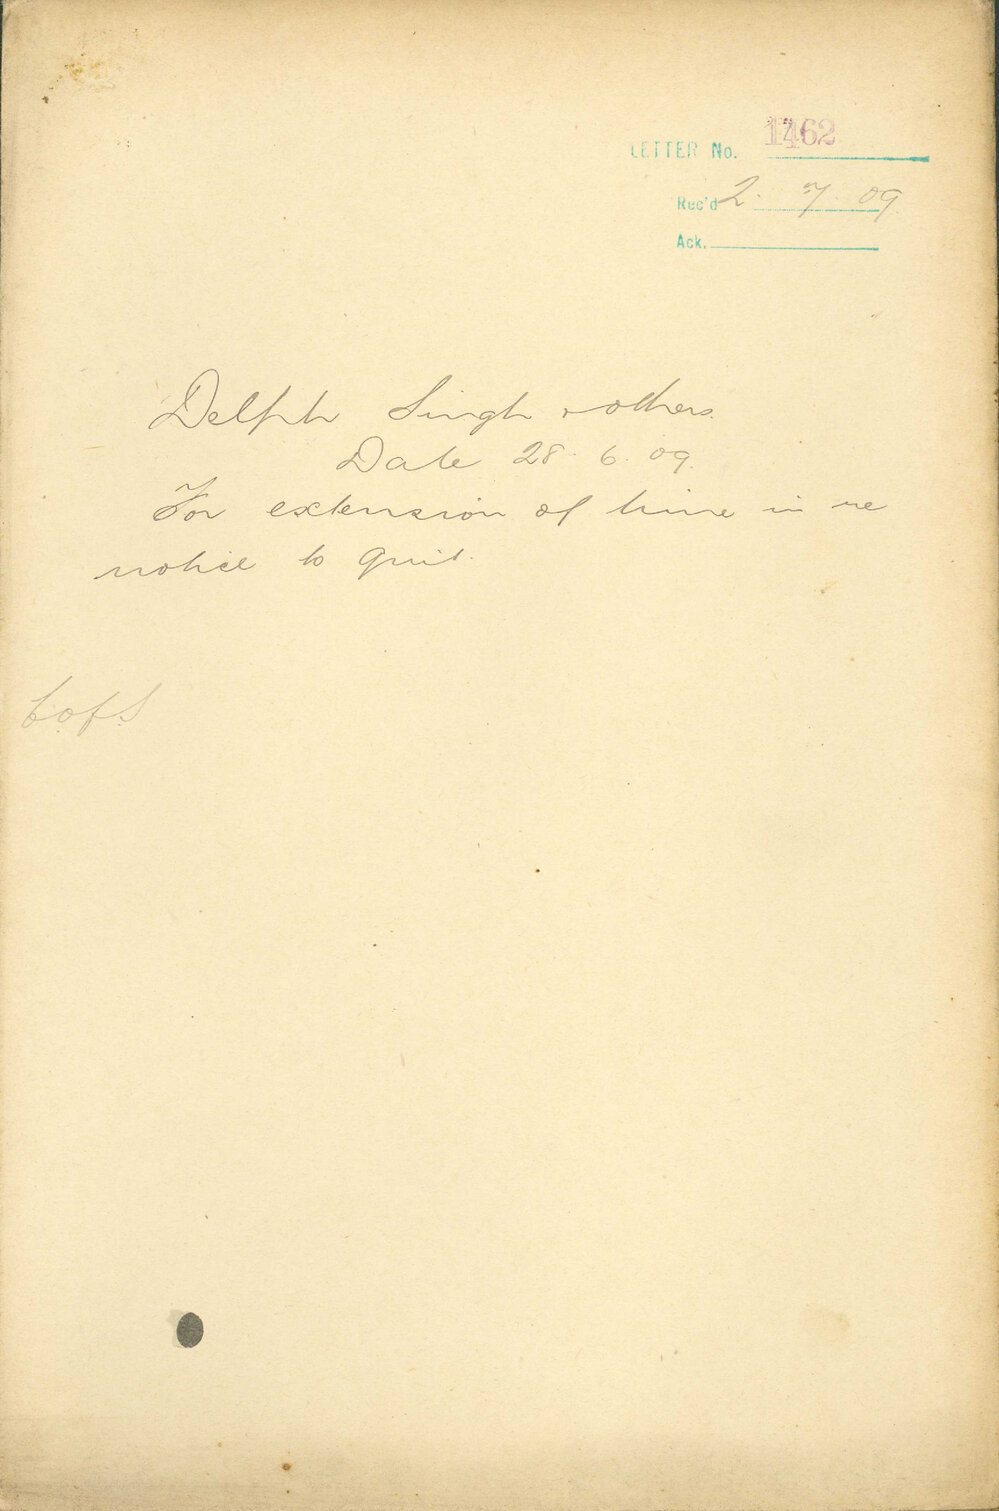 LETTER No. 1462
Rec'd 2. 7. 09.
Ack.
Delph Singh & others.
Date 28. 6. 09.
For extension of time in re
notice to quit.
C.of.S